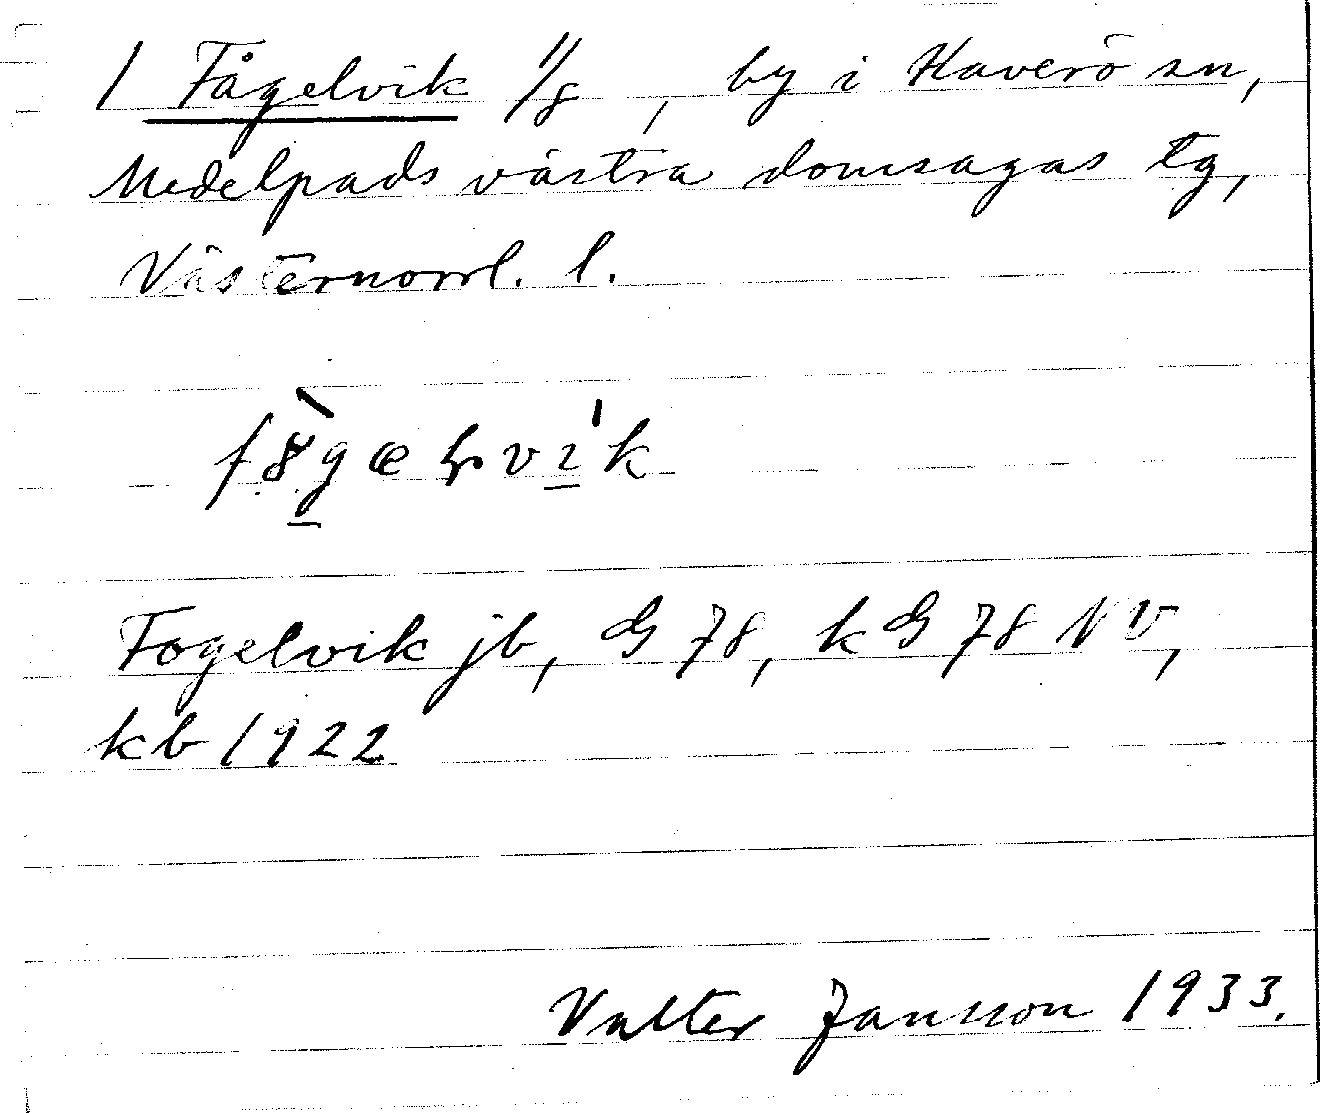 1 Fågelvik 1/8, by i Haverö sn,
Medelpads västra domsagas tg,
Västernorrl. l.
Fogelvik jb, G 78, k G 78 NV,
kb 1922
Valter Jansson 1933.